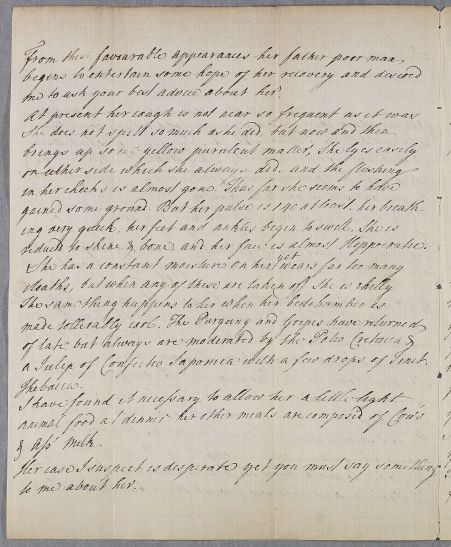 From these favourable appearances her father poor man
begins to entertain some hope of her recovery and desired
me to ask your best advice about her
At present her cough is not near so frequent as it was
She does not spitt so much as she did, but now and then
brings up some yellow purulent matter, She lyes easily
on either side which she always did. and the flushing
in her cheeks is almost gone. Thus far she seems to have
gained some ground. But her pulse is 140 at least. her breath
ing very quick, her feet and ankles begin to swell. She is
reduced to skine & bone and her face is almost Hippocratic.
She has a constant moisture on her, yet wears far too many
cloaths, but when any of these are taken off she is chilly
The same thing happens to her when her bedchamber is
made tollerably cool. The Purging and Gripes have returned
of late but always are moderated by the Potio Cretacea &
a Julep of Confectio Japonica with a few drops of Tinct.
Thebaica.
I have found it necessary to allow her a little light
animal food at dinner her other meals are composed of Cow's
& Ass' milk.
Her case I suspect is desperate yet you must say something
to me about her.